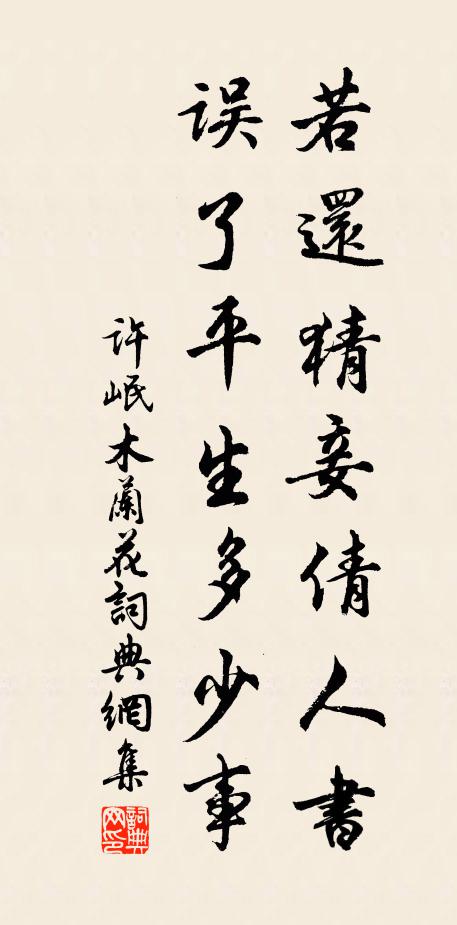 若還猜妾倩人書
误了平生多少事
许岷木蘭花詞典網集
詞典网印